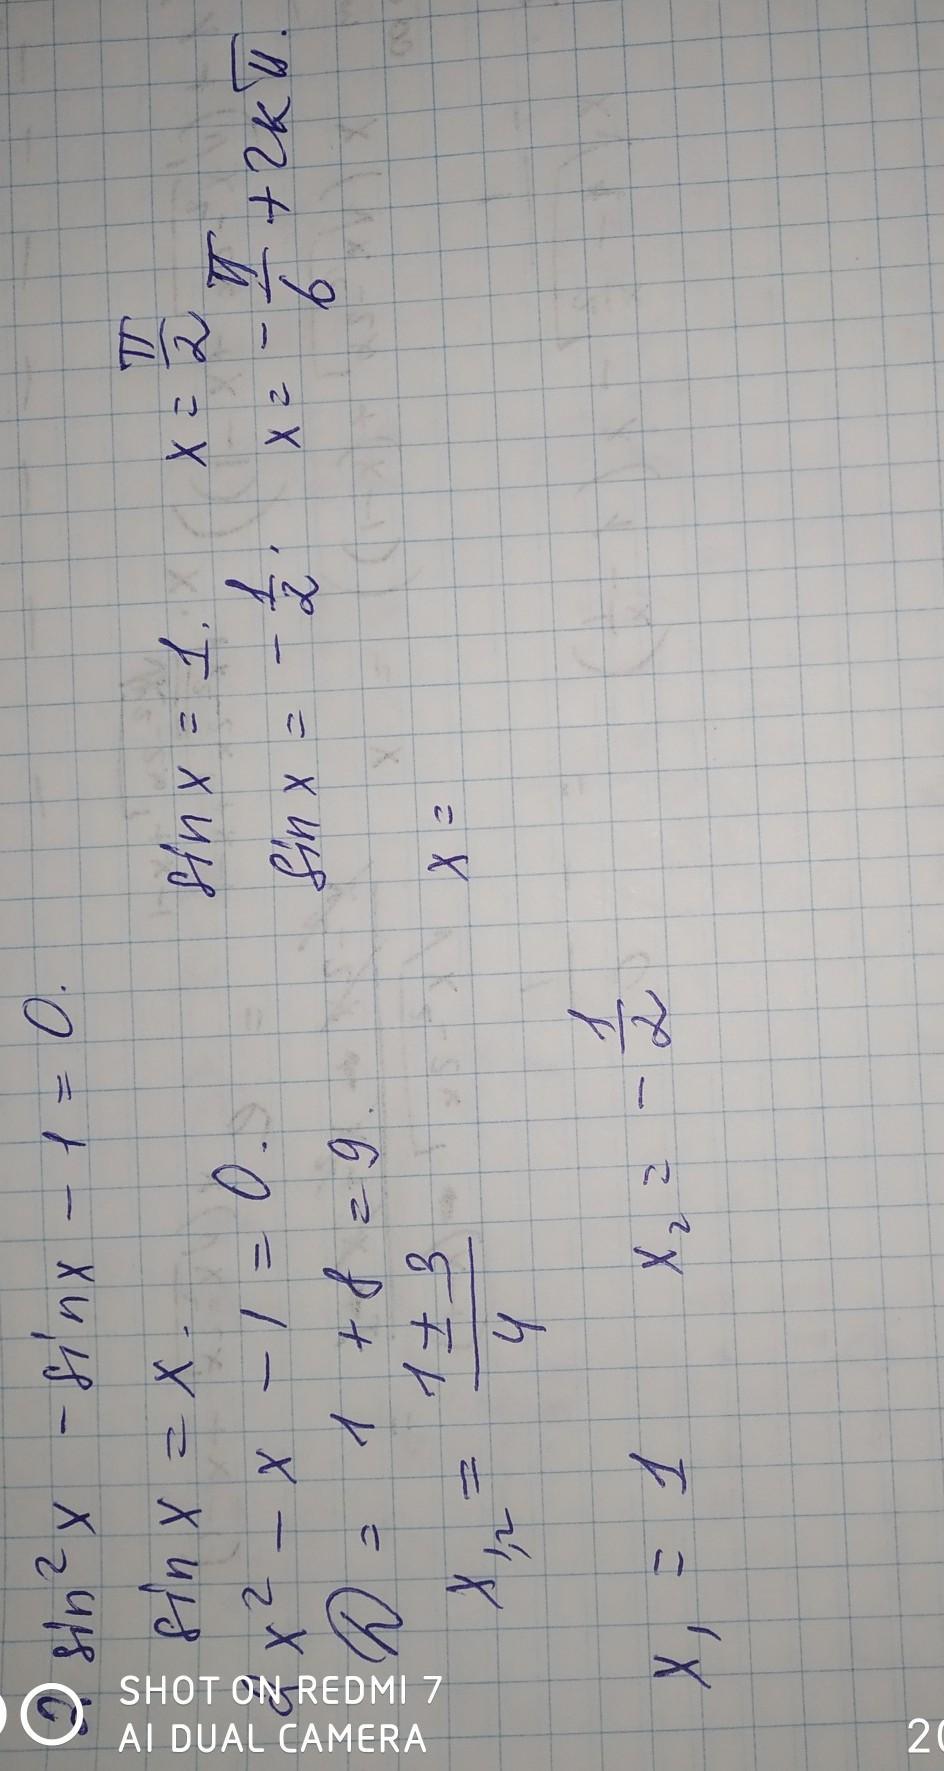 2 sin² x - sin x - 1 = 0.
sin x = x.
2x² - x - 1 = 0.
D = 1 + 8 = 9.
x₁,₂ = (1 ± 3)/4
x₁ = 1 x₂ = - 1/2
sin x = 1. x = π/2
sin x = - 1/2. x = - π/6 + 2kπ.
x =
SHOT ON REDMI 7
AI DUAL CAMERA